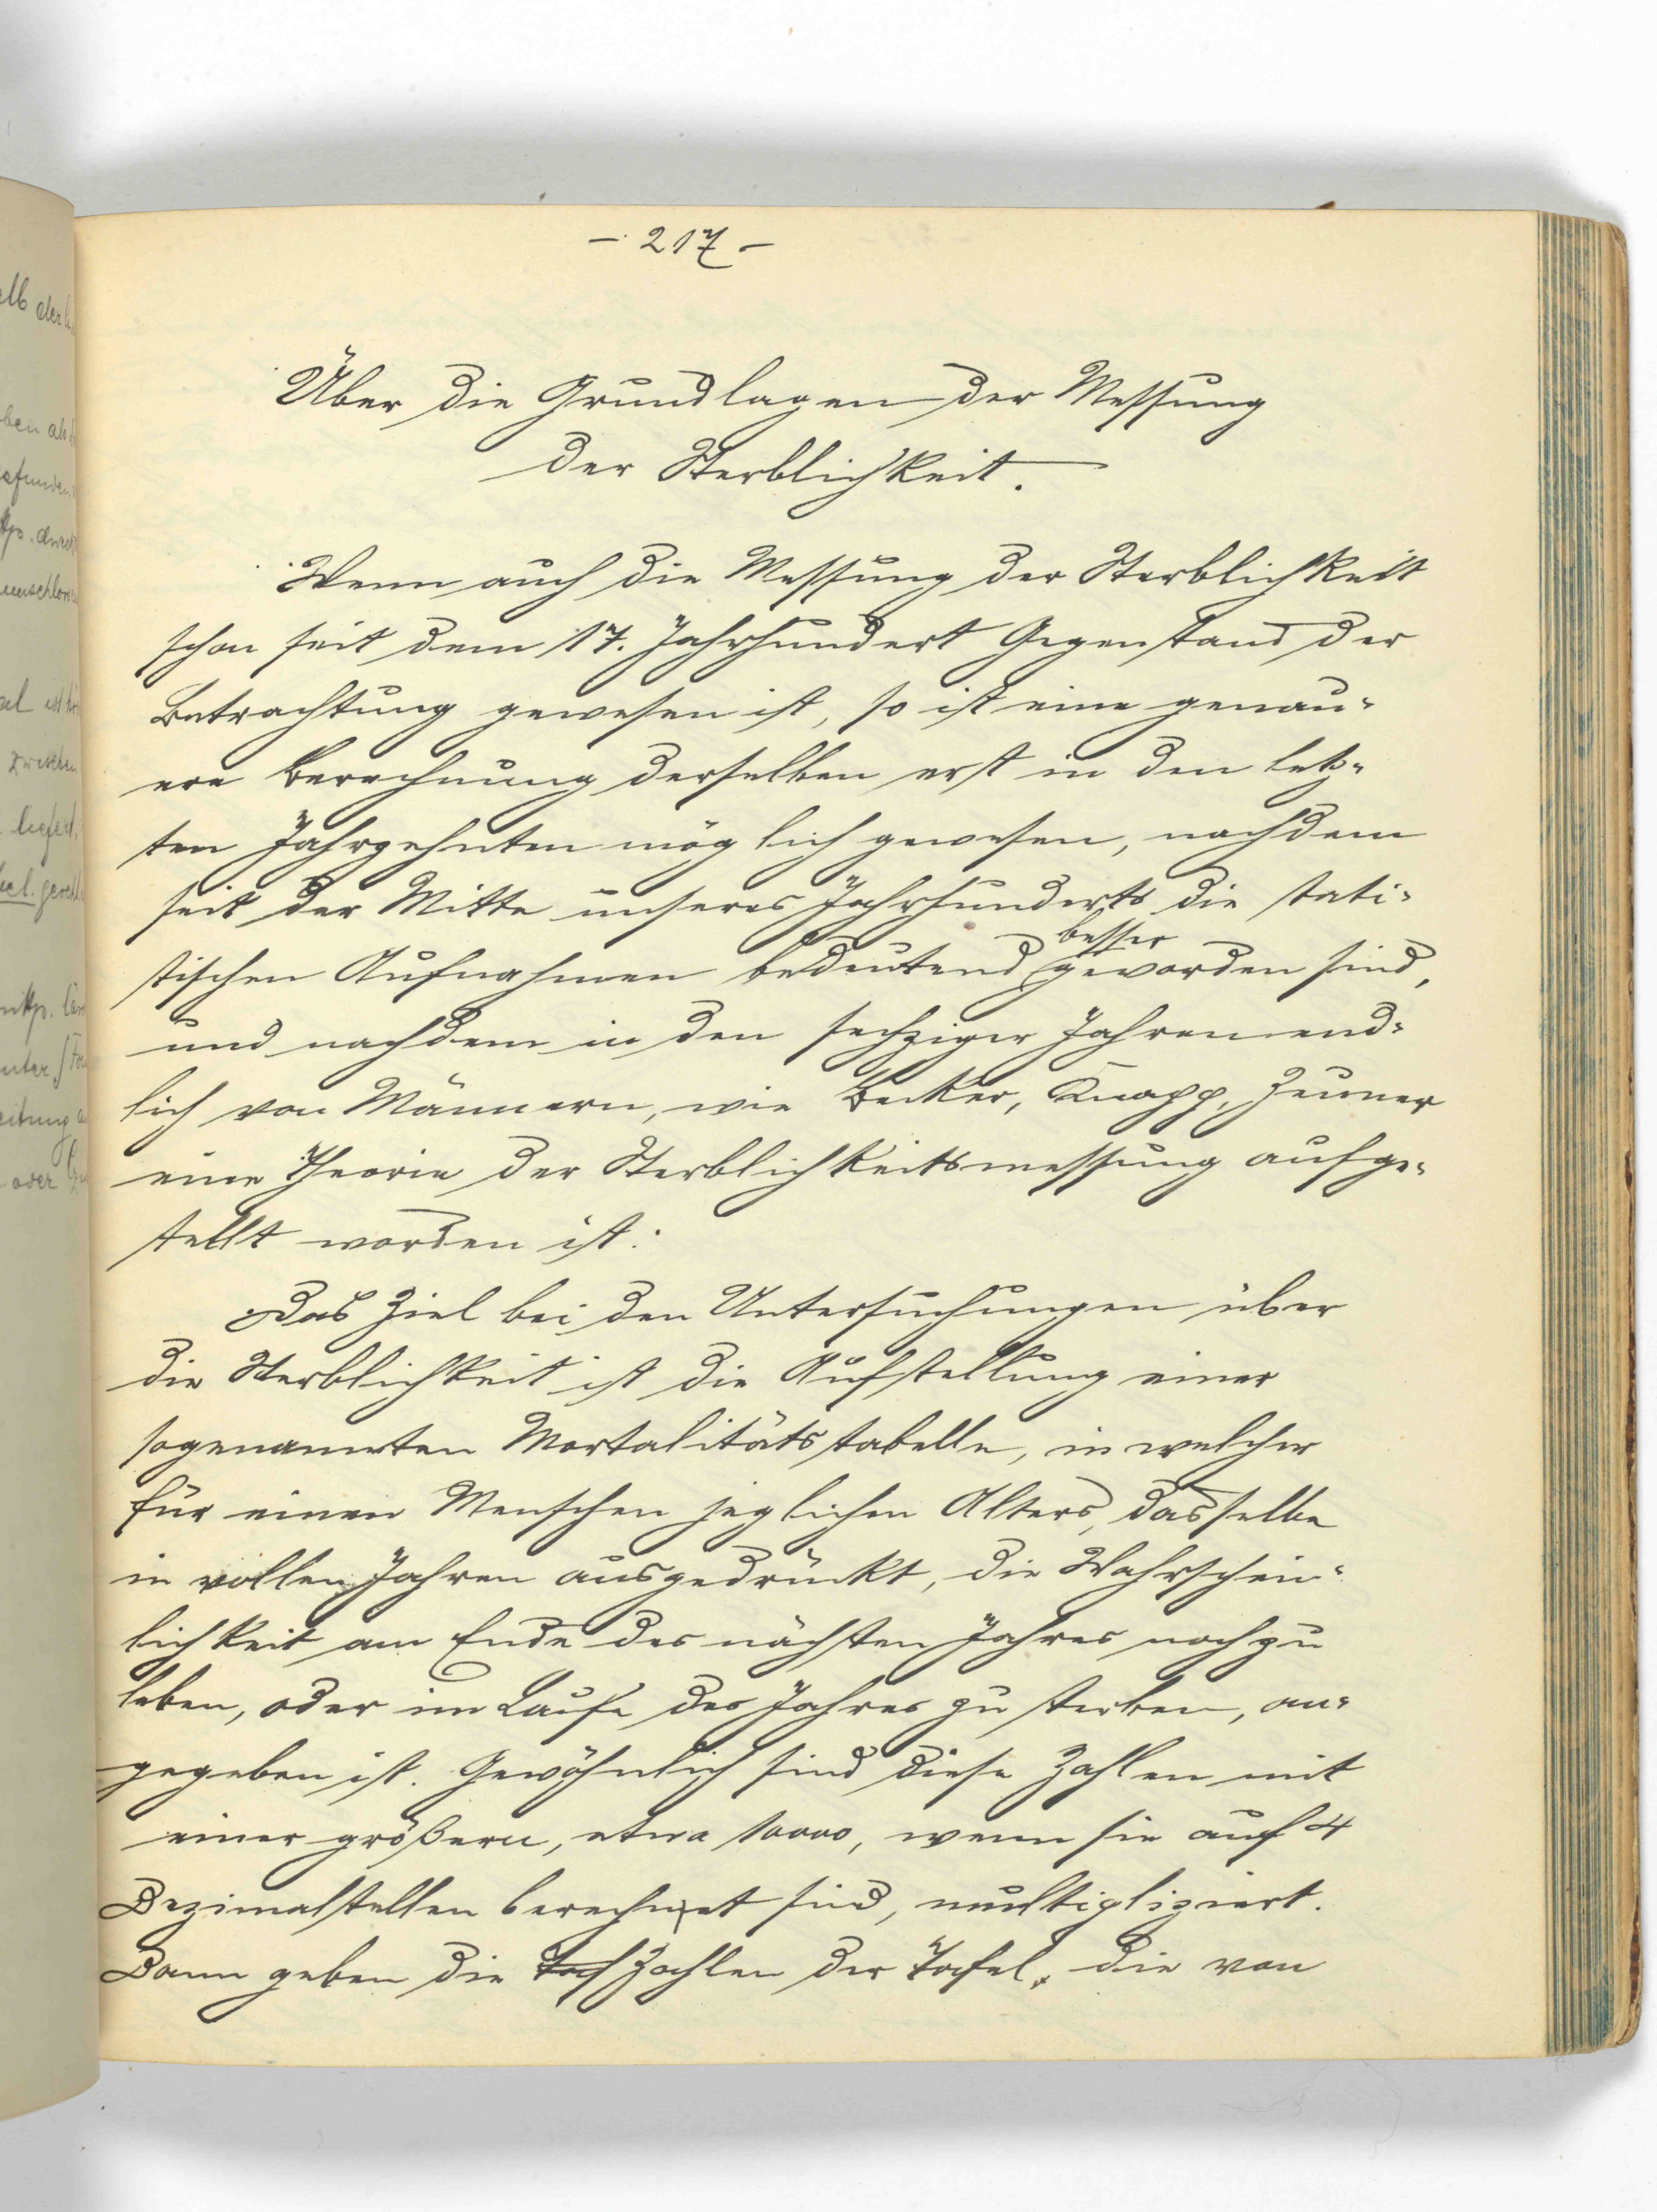 - 217 -
Über die Grundlagen der Messung
der Sterblichkeit.
Wenn auch die Messung der Sterblichkeit
schon seit dem 17. Jahrhundert Gegenstand der
Betrachtung gewesen ist, so ist eine genau-
ere Berechnung derselben erst in den letz-
ten Jahrzehnten möglich gewesen, nachdem
seit der Mitte unseres Jahrhunderts die stati-
besser
stischen Aufnahmen bedeutend geworden sind,
und nachdem in den sechziger Jahren end-
lich von Männern, wie Becker, Knapp, Zeuner
eine Theorie der Sterblichkeitsmessung aufge-
stellt worden ist.
Das Ziel bei den Untersuchungen über
die Sterblichkeit ist die Aufstellung einer
sogenannten Mortalitätstabelle, in welcher
für einen Menschen jeglichen Alters, dasselbe
in vollen Jahren ausgedrückt, die Wahrschein-
lichkeit am Ende des nächsten Jahres noch zu
leben, oder im Laufe des Jahres zu sterben, an-
gegeben ist. Gewöhnlich sind diese Zahlen mit
einer größern, etwa 10000, wenn sie auf 4
Dezimalstellen berechnet sind, multipliziert.
Dann geben die Zahlen der Tafel, die von
elb der
ben als
efunden
zwischen
liefert,
oder